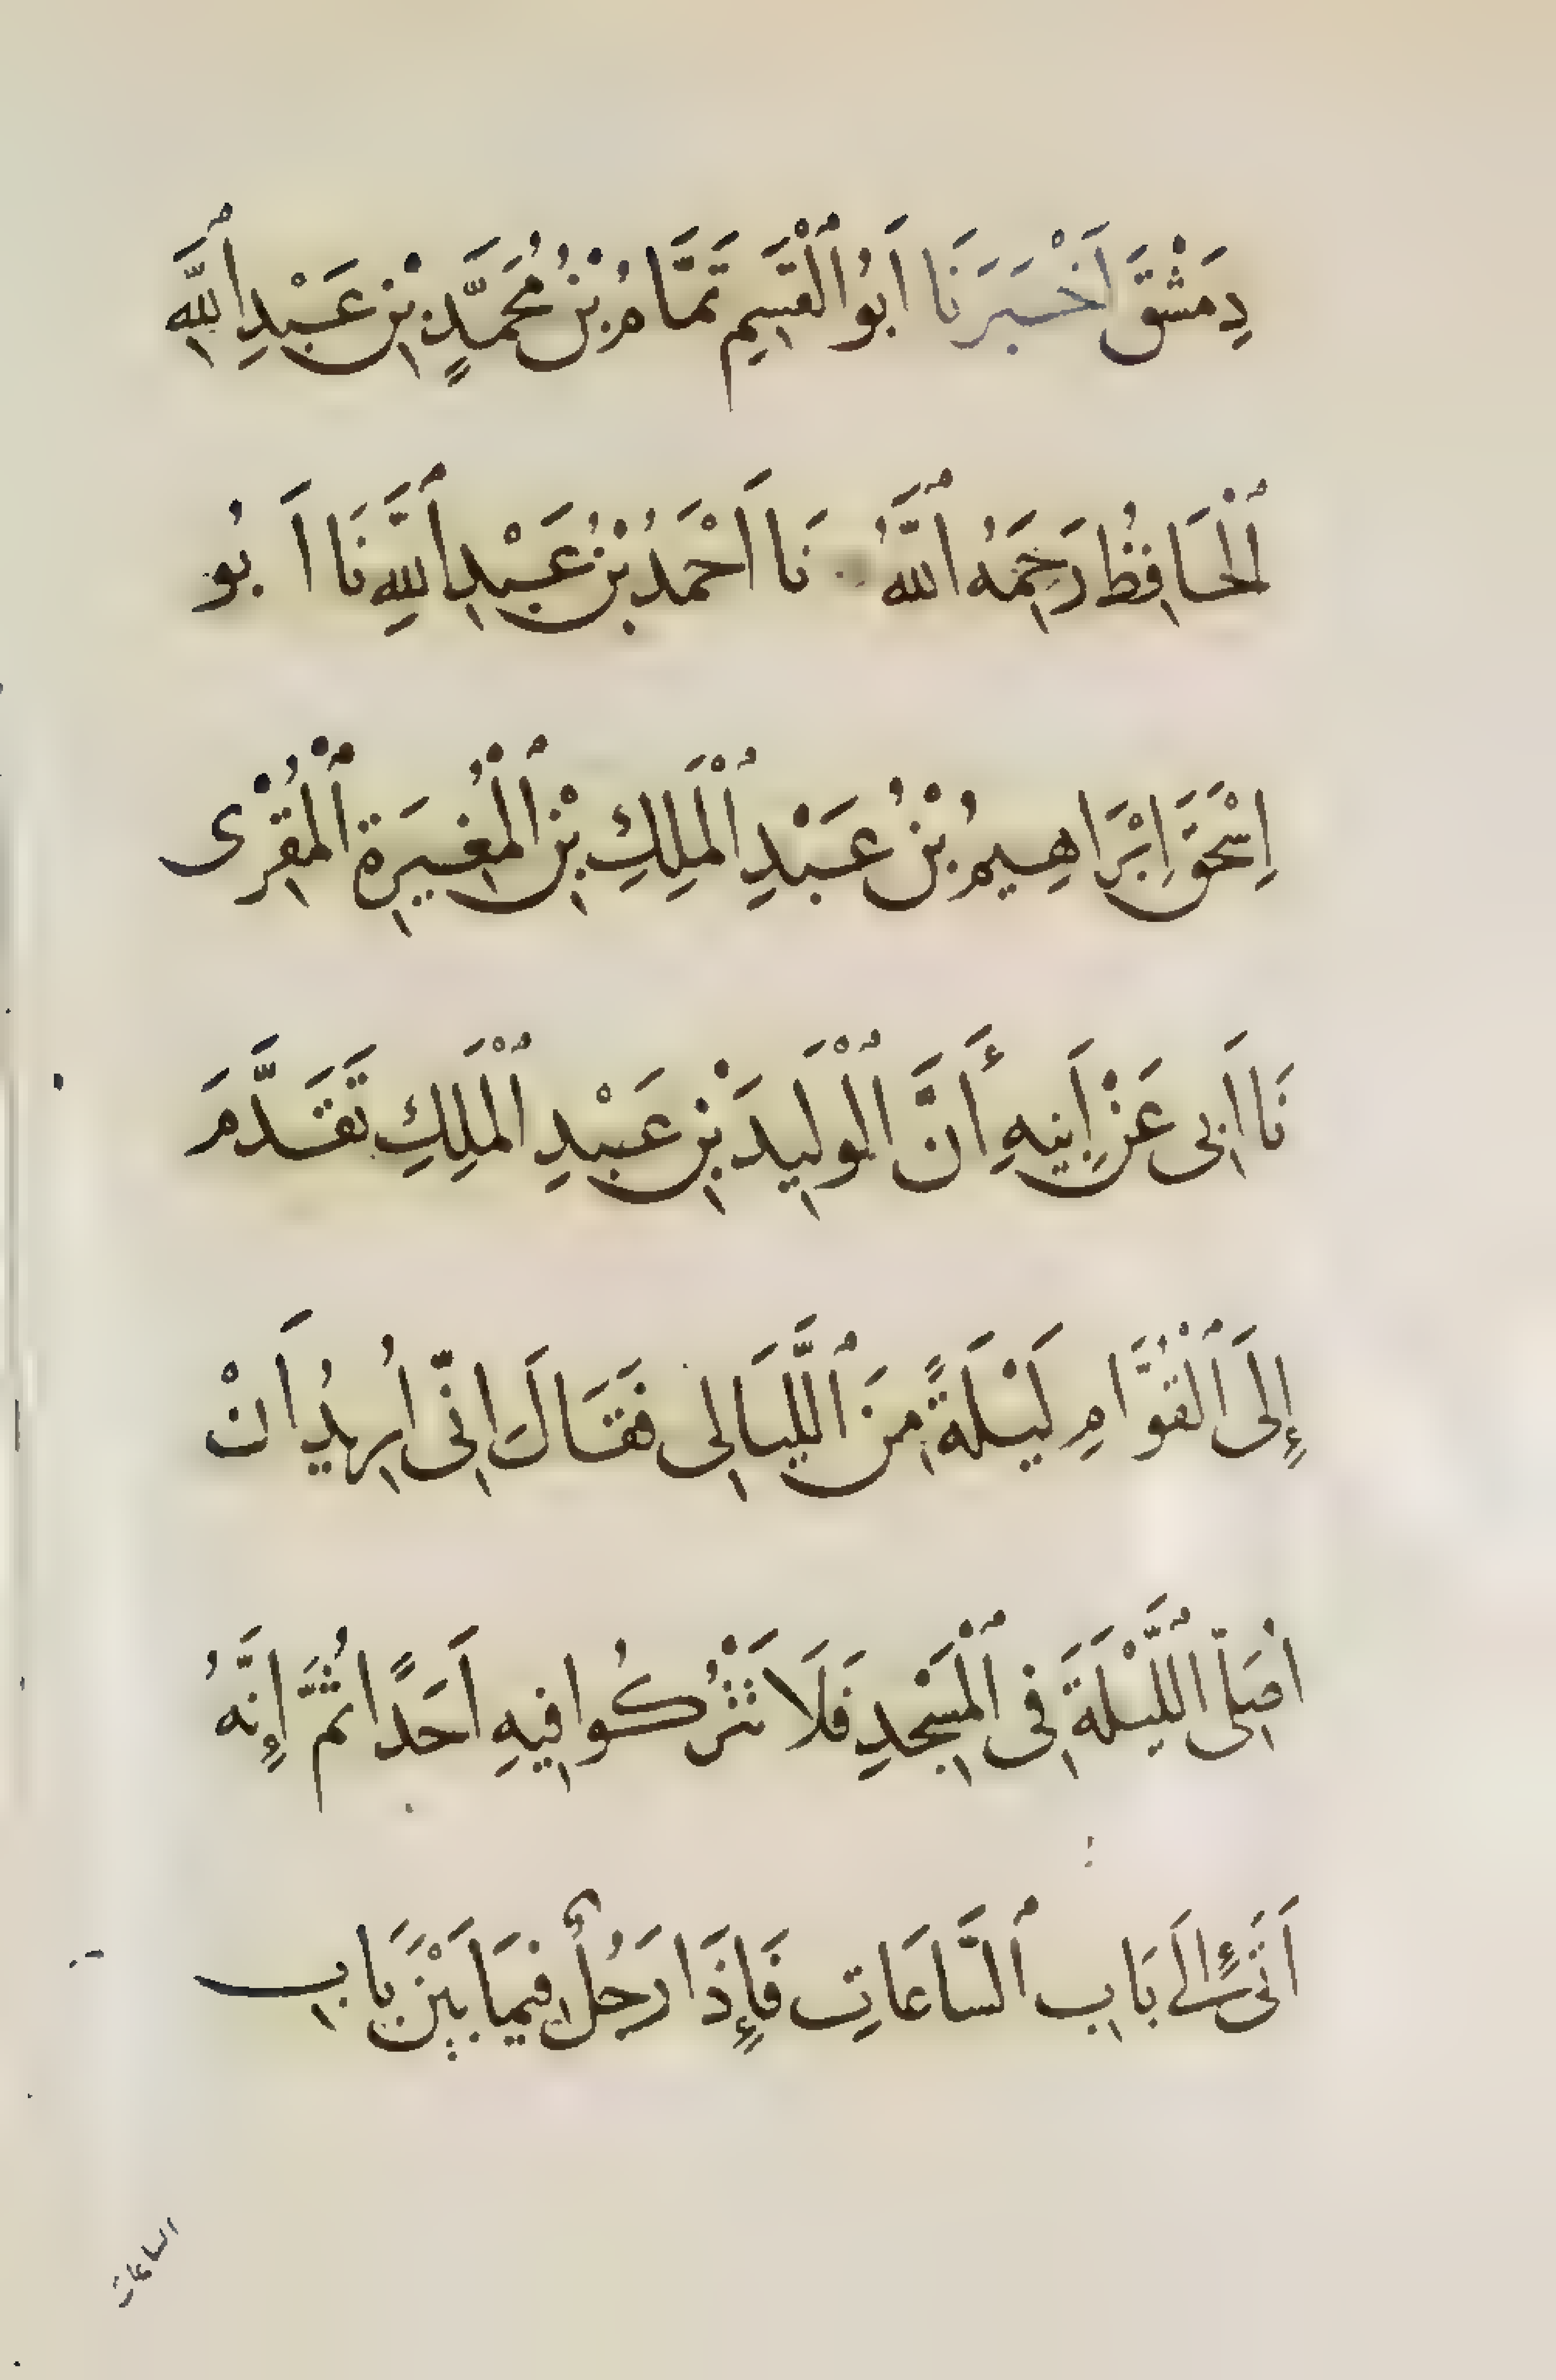 دِمَشْقَ اَخْبَرَنَا اَبُو ٱلْقٰسِمِ تَمَّامُ بْنُ مُحَمَّدِ بْنِ عَبْدِ ٱللَّهِ
ٱلْحَافِظُ رَحِمَهُ ٱللَّهُ نَا اَحْمَدُ بْنُ عَبْدِ ٱللَّهِ نَا اَبُو
اِسْحَقَ اِبْرَاهِيمُ بْنُ عَبْدِ ٱلْمَلِكِ بْنِ ٱلْمُغِيرَةِ ٱلْمُقْرِى
نَا اَبِى عَنْ اَبِيهِ أَنَّ ٱلْوَلِيدَ بْنَ عَبْدِ ٱلْمَلِكِ تَقَدَّمَ
إِلَى ٱلْقُوَّامِ لَيْلَةً مِنَ ٱللَّيَالِى فَقَالَ اِنِّى اُرِيدُ اَنْ
اُصَلِّى ٱللَّيْلَةَ فِى ٱلْمَسْجِدِ فَلَا تَتْرُكُوا فِيهِ اَحَدًا ثُمَّ إِنَّهُ
اَتَى إِلَى بَابِ ٱلسَّاعَاتِ فَإِذَا رَجُلٌ فِيمَا بَيْنَ بَابِ
الساعات